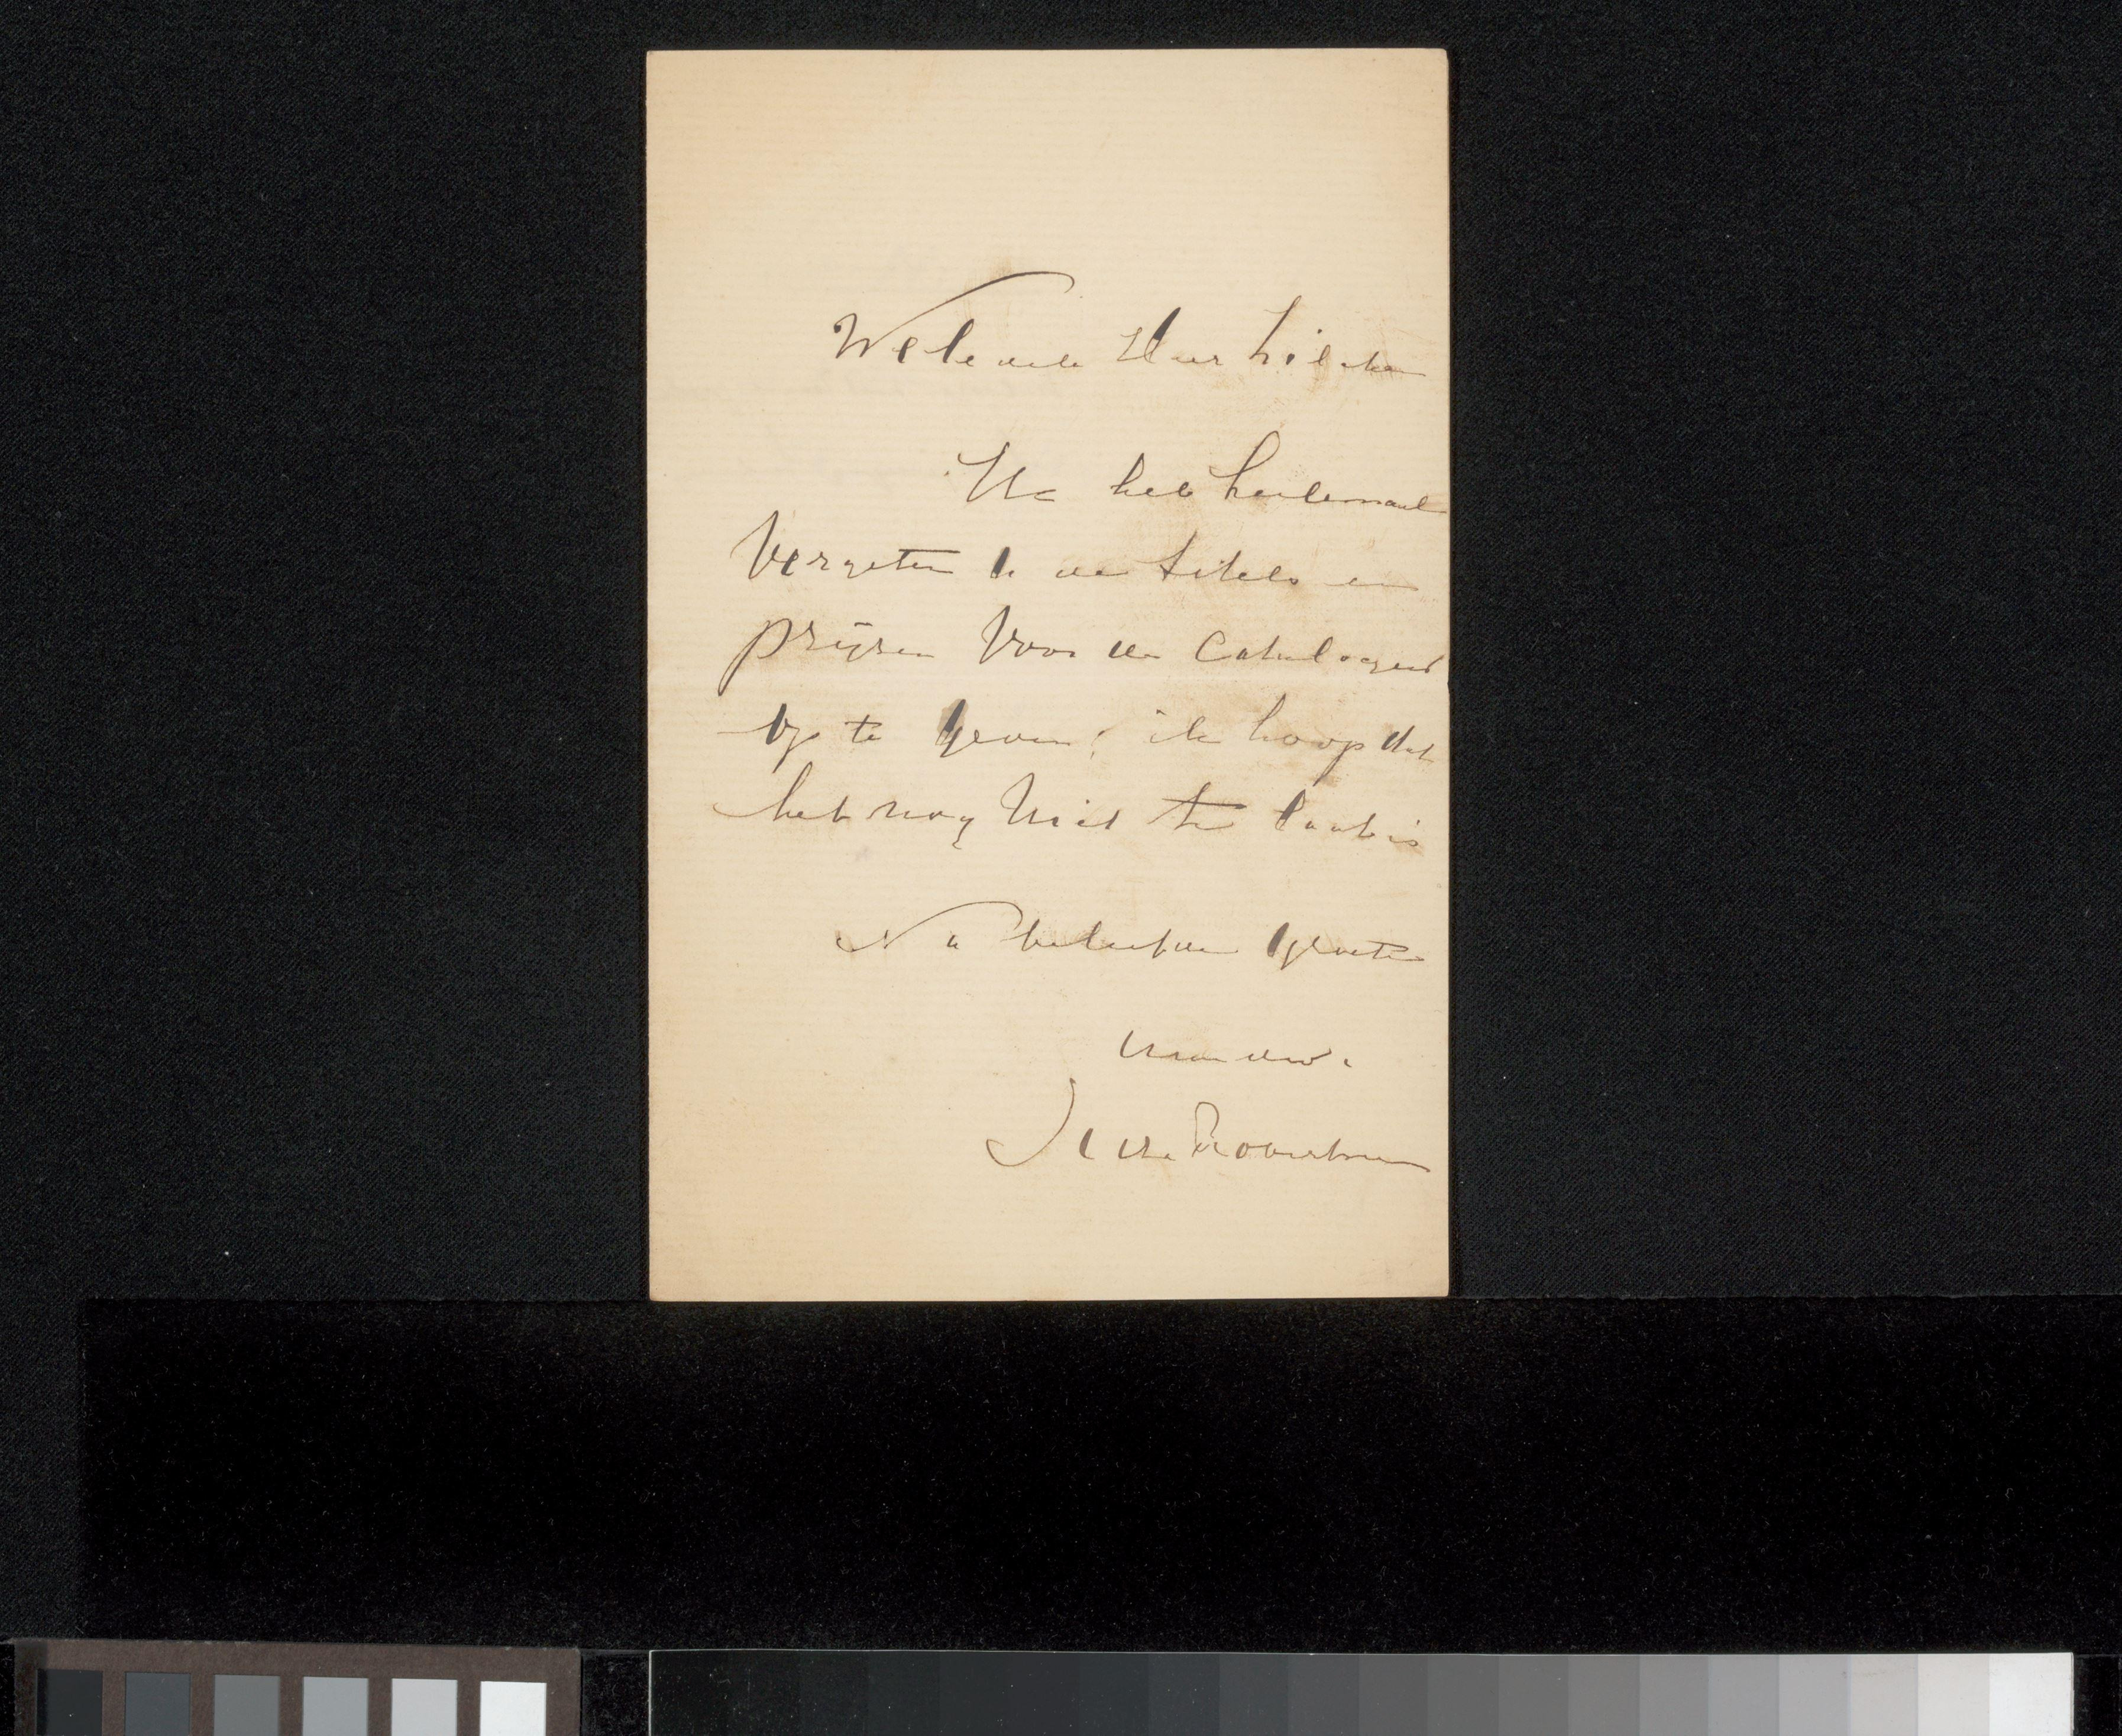 Weledele Heer
Ik heb heelemaal
Vergeten U de titels en
prijzen Voor de Catalogus
op te geven; ik hoop dat
het nog Niet te laat is
Na beleefde groeten
van uw